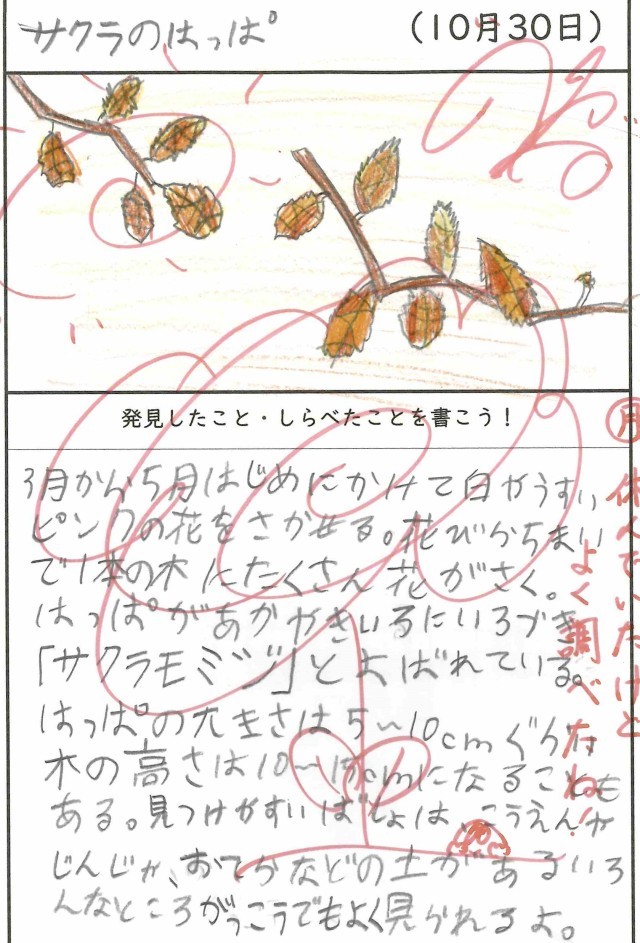 サクラのはっぱ
(10月30日)
発見したこと・しらべたことを書こう！
3月から5月はじめにかけて白やうすい
ピンクの花をさかせる。花びら5まい
で1本の木にたくさん花がさく。
はっぱがあかやきいろにいろづき
「サクラモミジ」とよばれている。
はっぱの大きさは5〜10cmぐらい
木の高さは10〜15cmになることも
ある。見つけやすいばしょは、こうえんや
じんじゃ、おてらなどの土があるいろ
んなところがっこうでもよく見られるよ。
月
休んでいたけど
よく調べたね!